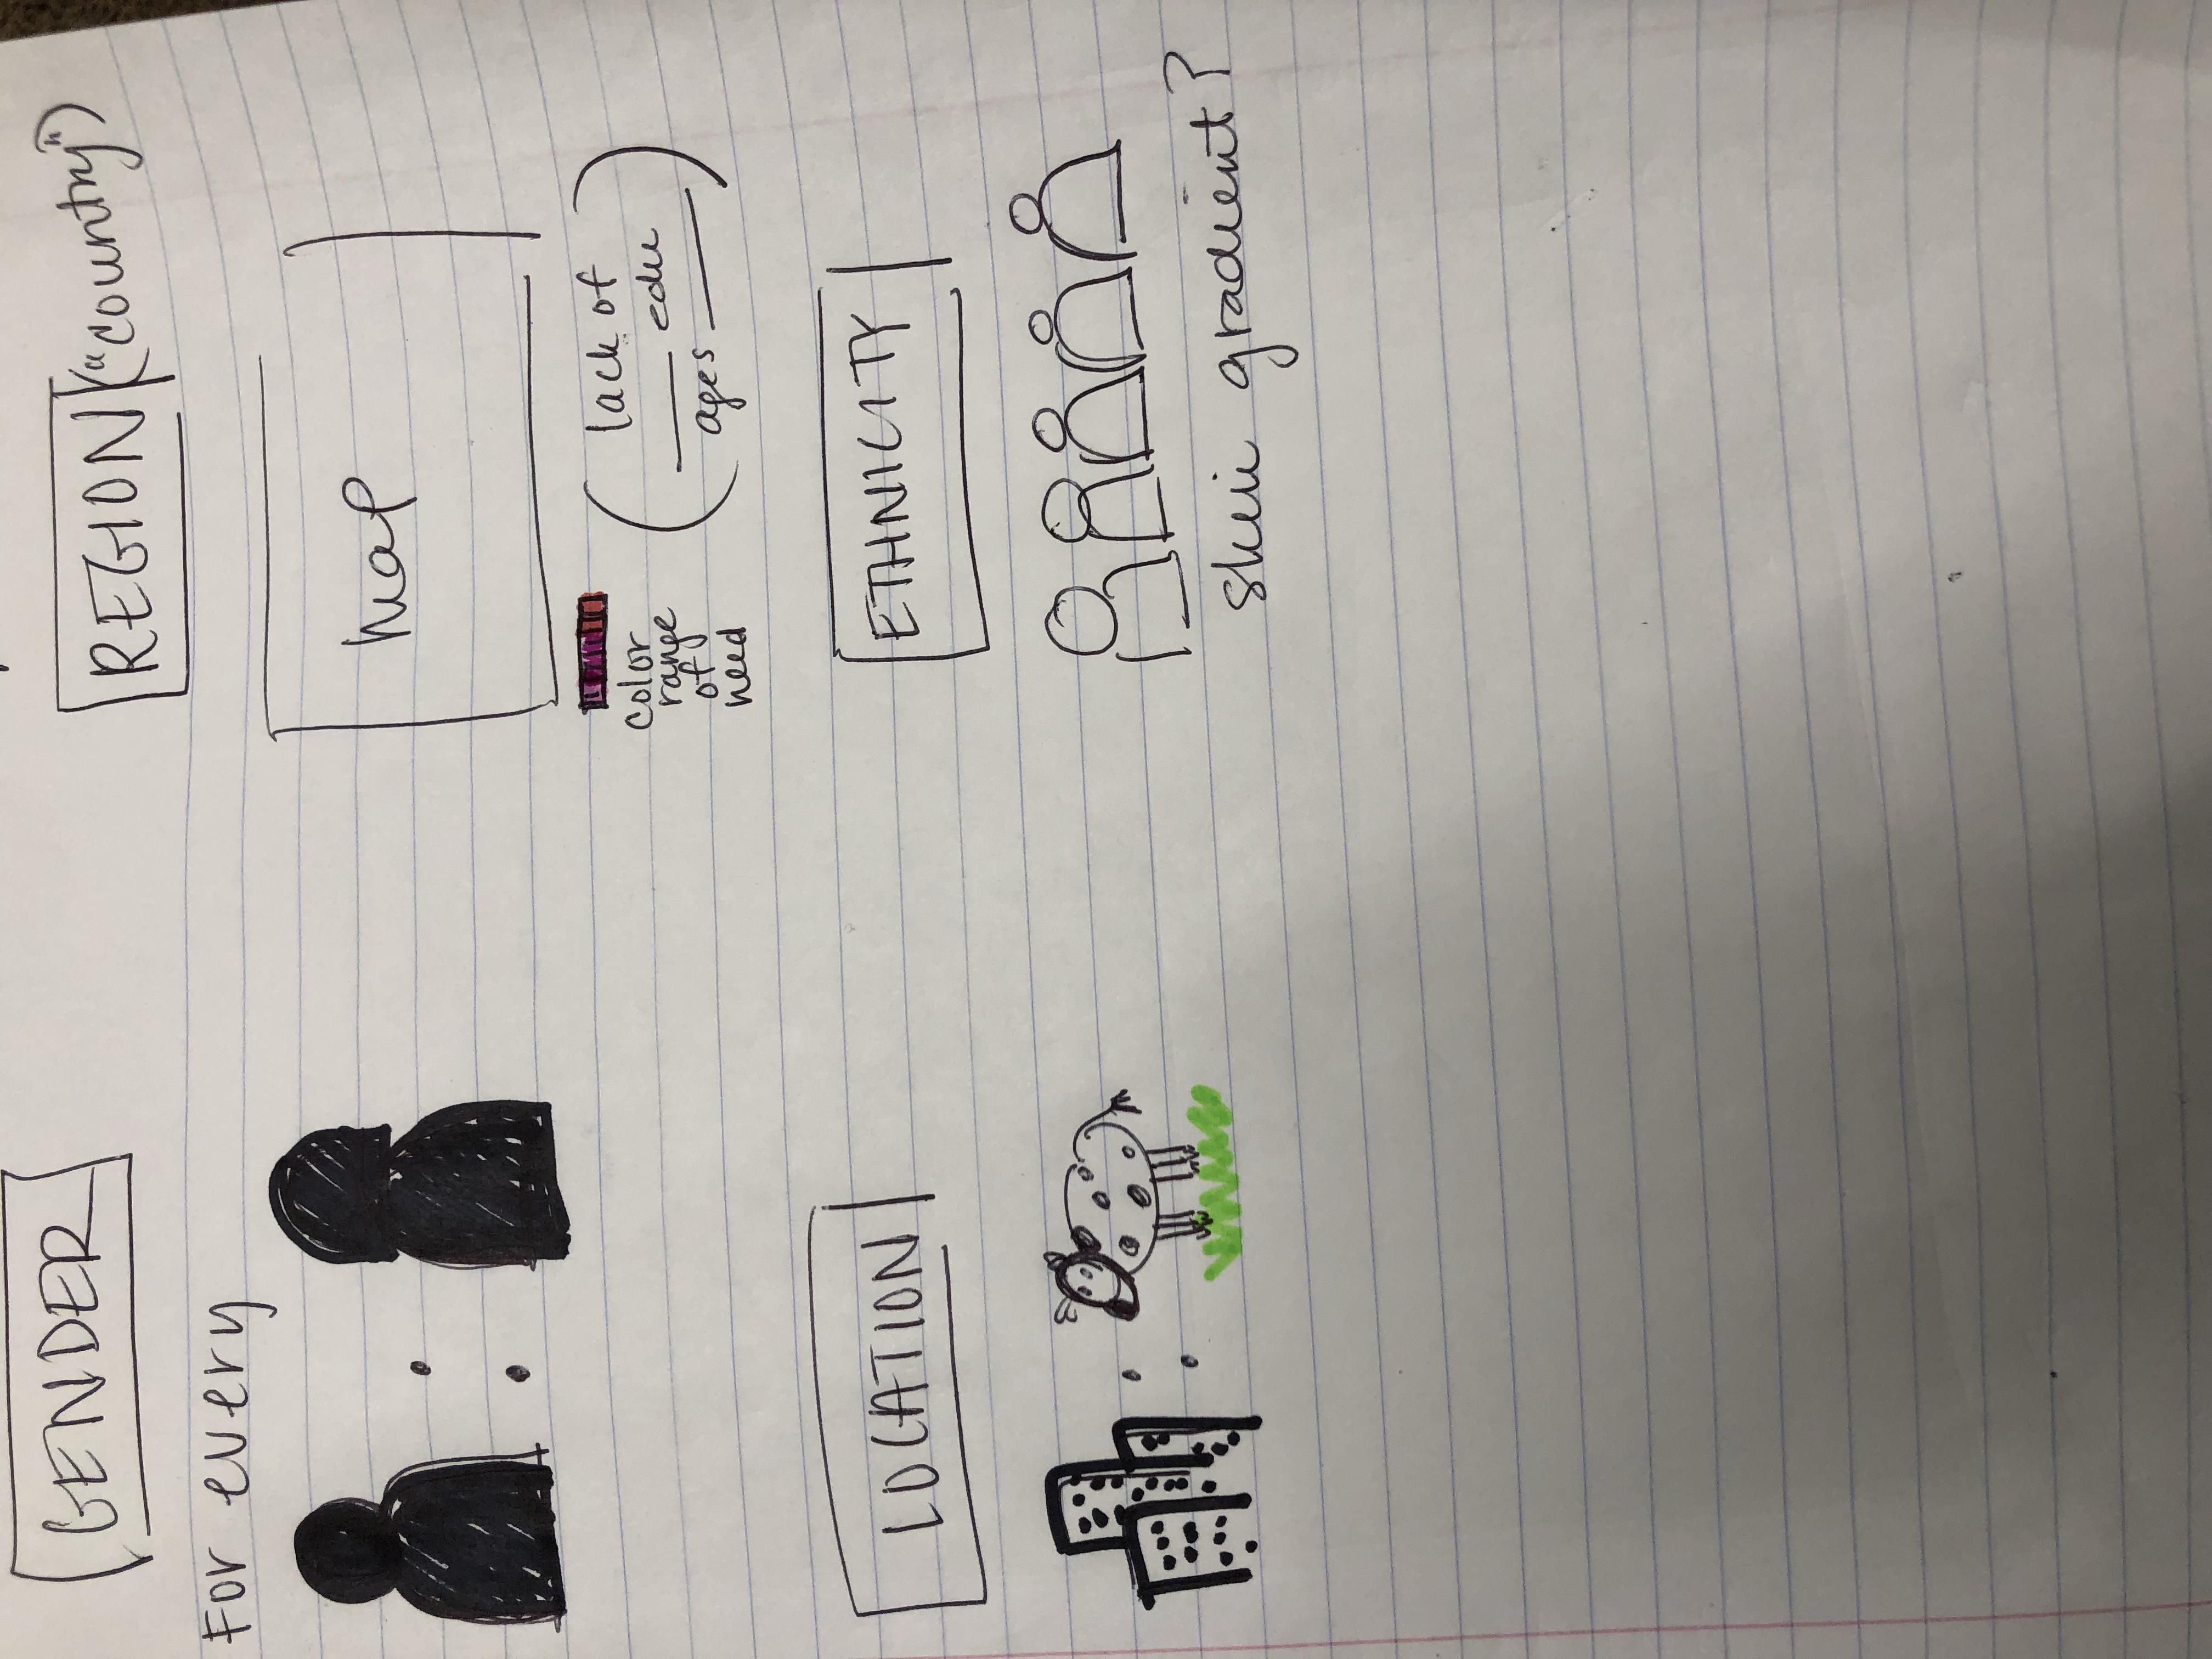 GENDER
For every
REGION ("country")
map
color
range
of
need
lack of
____ edu
ages ____
LOCATION
ETHNICITY
skin gradient?